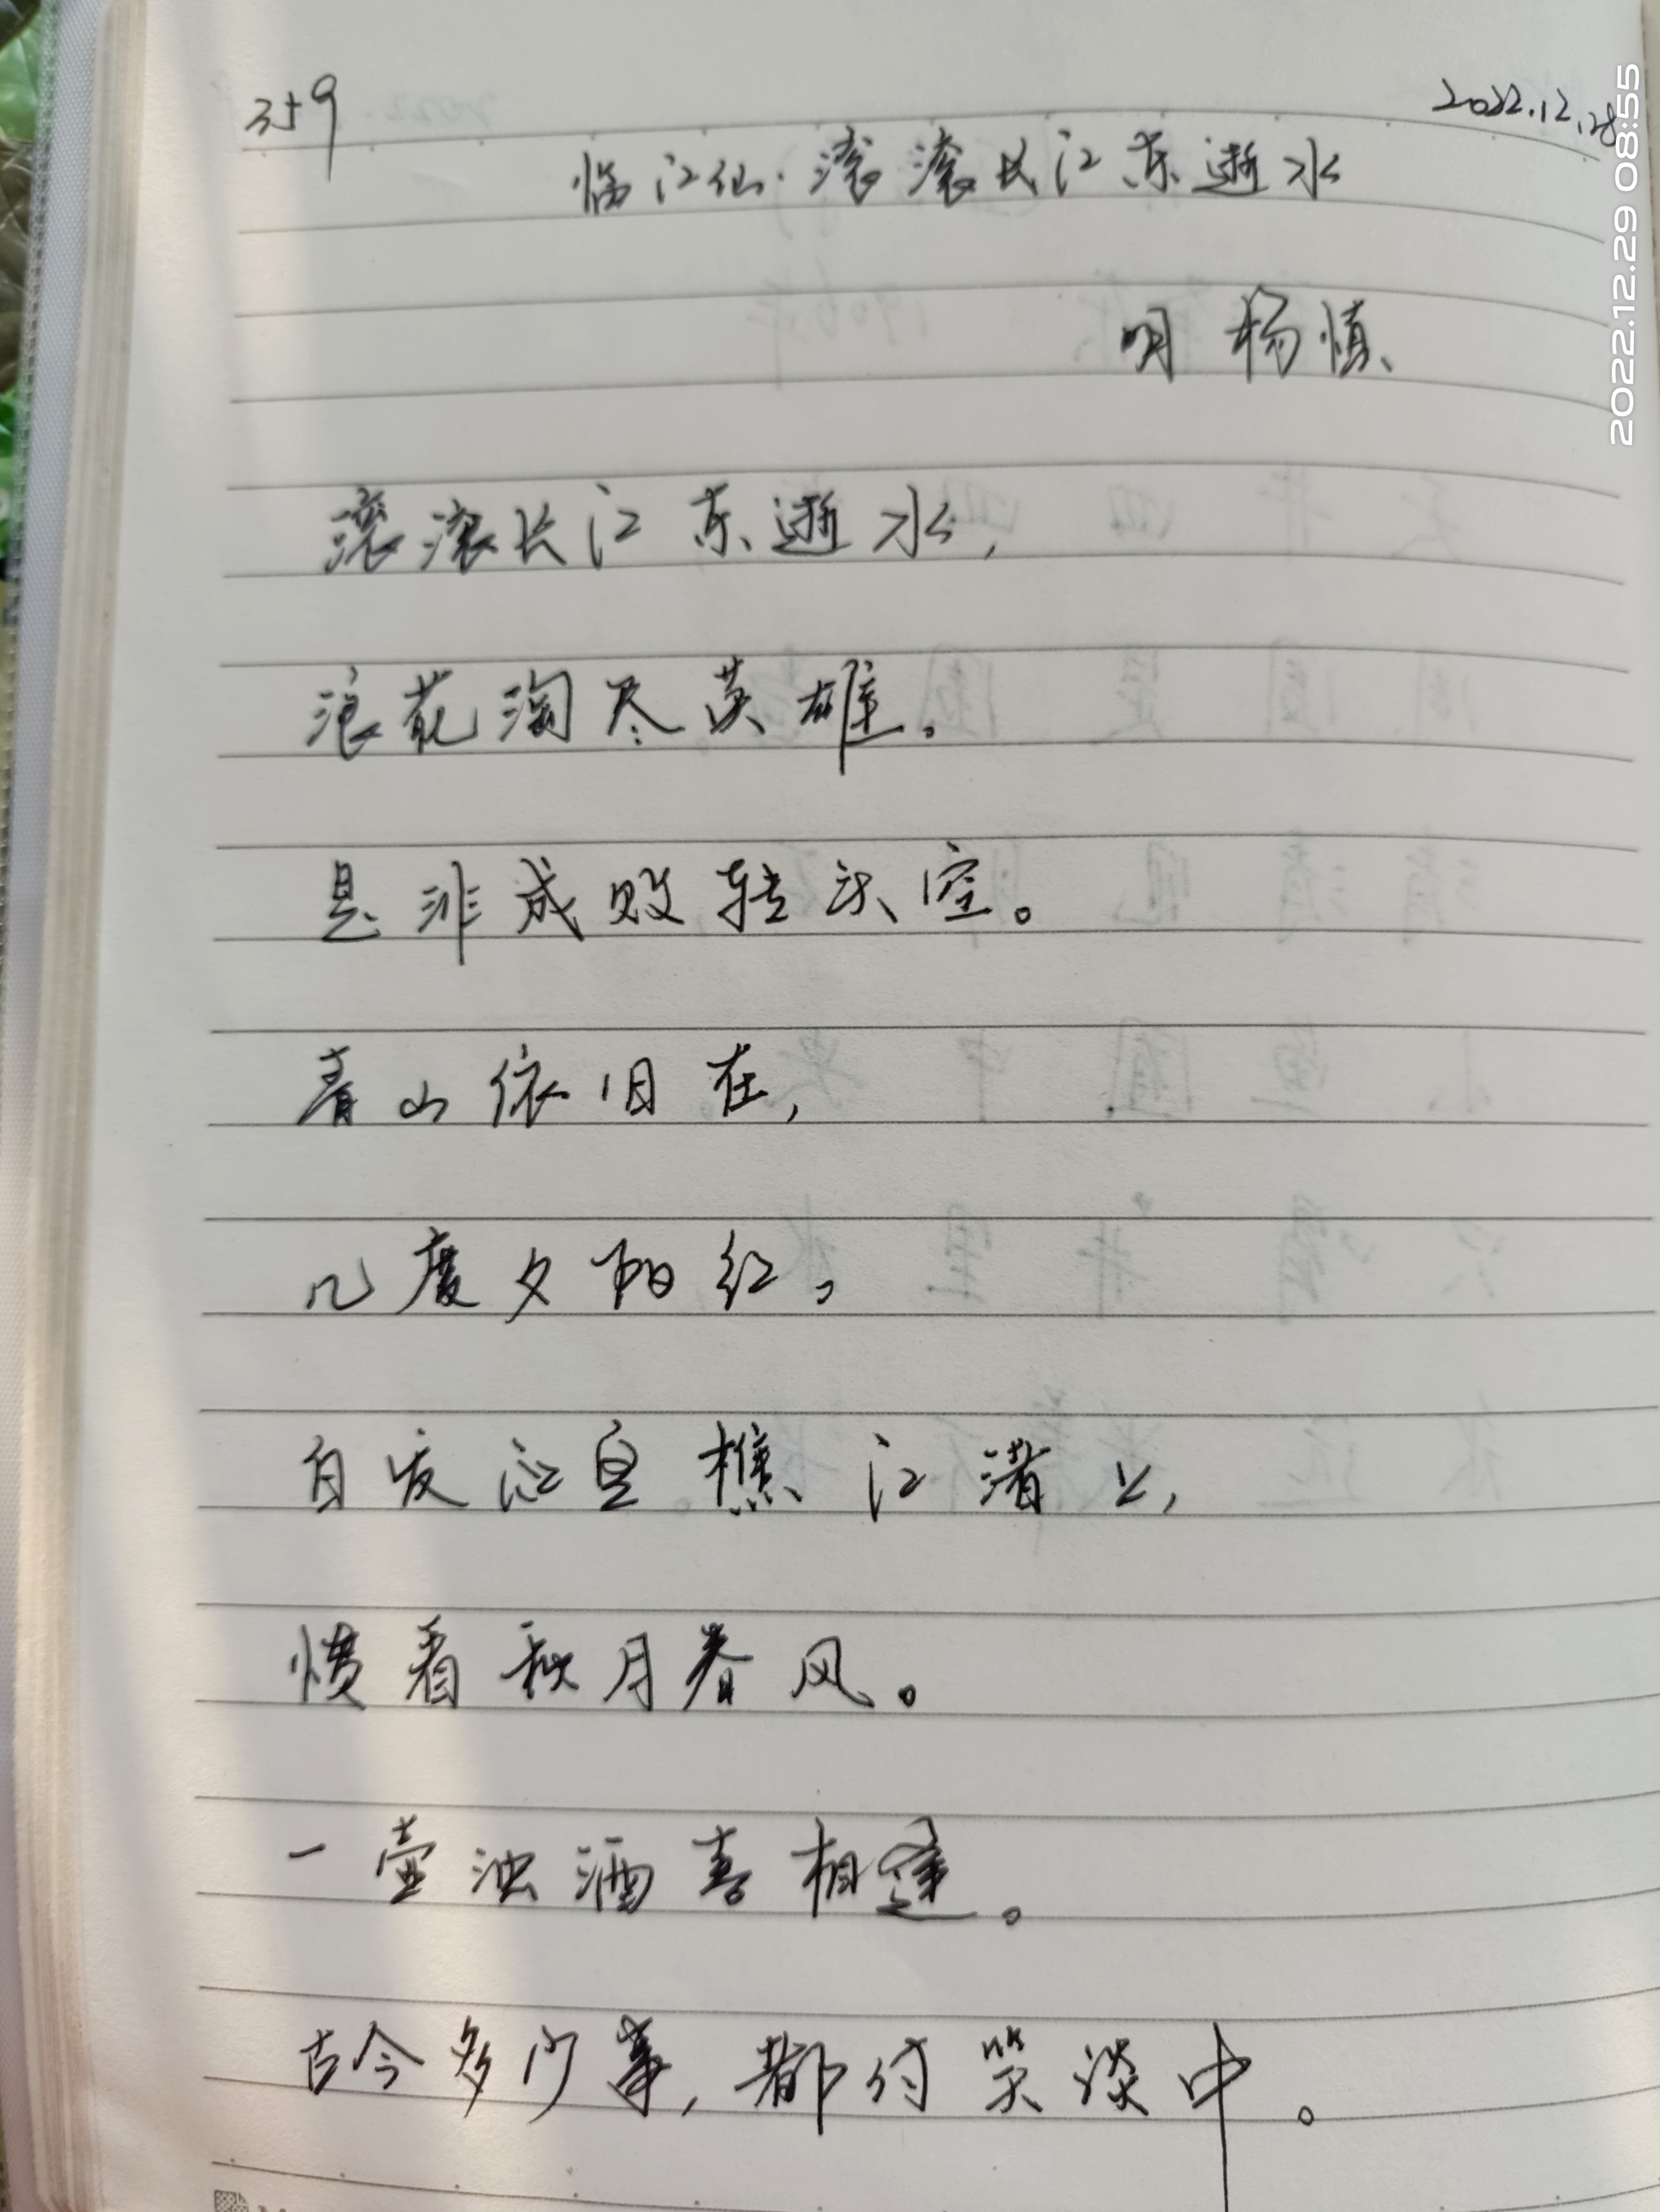 359
2022.12.28
临江仙·滚滚长江东逝水
明 杨慎
滚滚长江东逝水,
浪花淘尽英雄。
是非成败转头空。
青山依旧在,
几度夕阳红。
白发渔樵江渚上,
惯看秋月春风。
一壶浊酒喜相逢。
古今多少事,都付笑谈中。
2022.12.29 08:55